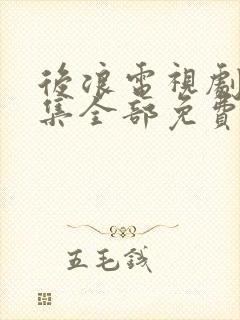 後浪電視劇
集全部免費
五毛錢